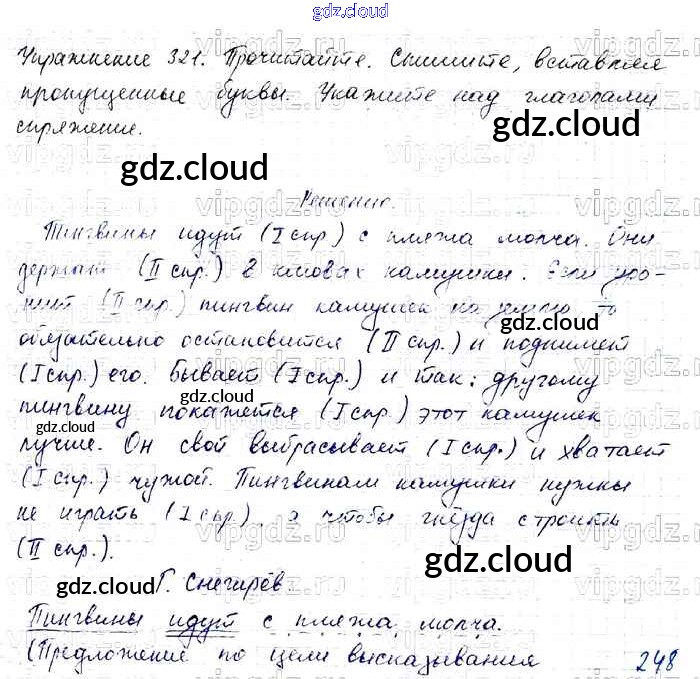 gdz.cloud
Упражнение 321. Прочитайте. Спишите, вставляя
пропущенные буквы. Укажите над глаголами
спряжение.
gdz.cloud
gdz.cloud
Решение.
Пингвины идут (I спр.) с пляжа молча. Они
держат (II спр.) в клювах камушки. Если уро-
нит (II спр.) пингвин камушек на землю, то
обязательно остановится (II спр.) и поднимет
gdz.cloud
(I спр.) его. Бывает (I спр.) и так: другому
gdz.cloud
пингвину покажется (I спр.) этот камушек
gdz.cloud
лучше. Он свой выбрасывает (I спр.) и хватает
(I спр.) чужой. Пингвинам камушки нужны
не играть (I спр.), а чтобы гнёзда строить
(II спр.).
gdz.cloud
gdz.cloud
Г. Снегирёв.
Пингвины идут с пляжа молча.
gdz.cloud
(Предложение по цели высказывания
248